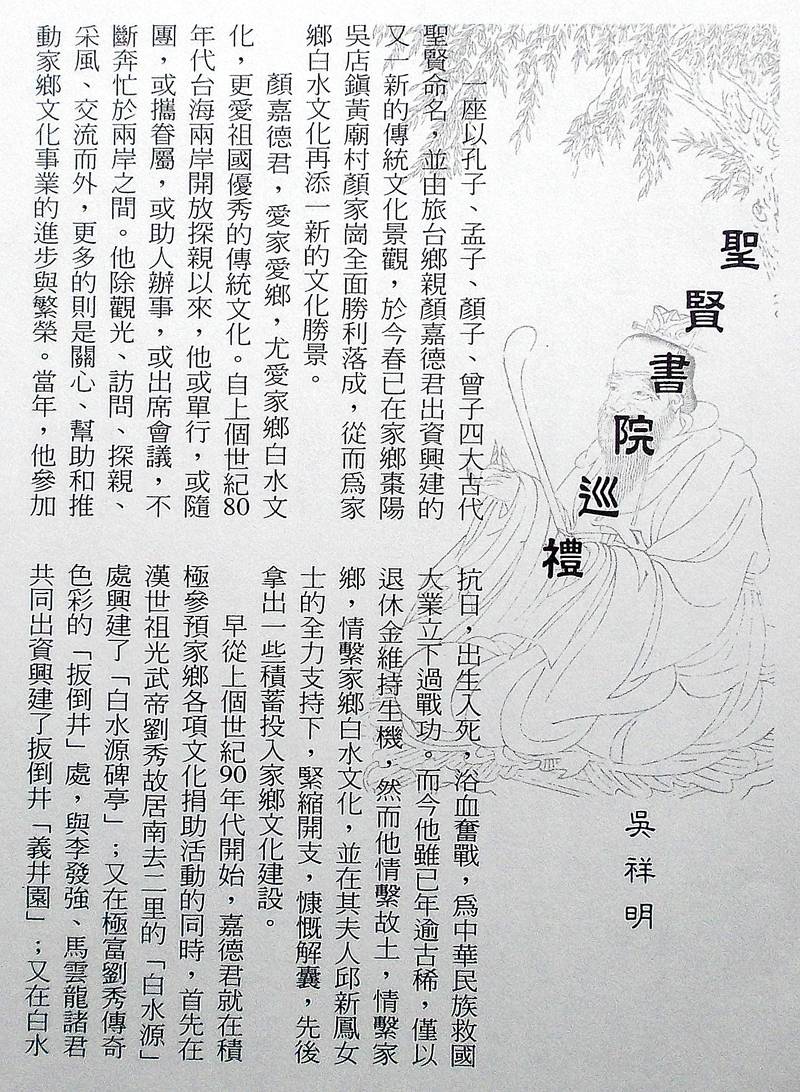 聖賢書院巡禮
吳祥明
一座以孔子、孟子、顏子、曾子四大古代
聖賢命名，並由旅台鄉親顏嘉德君出資興建的
又一新的傳統文化景觀，於今春已在家鄉棗陽
吳店鎮黃廟村顏家崗全面勝利落成，從而爲家
鄉白水文化再添一新的文化勝景。
顏嘉德君，愛家愛鄉，尤愛家鄉白水文
化，更愛祖國優秀的傳統文化。自上個世紀80
年代台海兩岸開放探親以來，他或單行，或隨
團，或攜眷屬，或助人辦事，或出席會議，不
斷奔忙於兩岸之間。他除觀光、訪問、探親、
采風、交流而外，更多的則是關心、幫助和推
動家鄉文化事業的進步與繁榮。當年，他參加
抗日，出生入死，浴血奮戰，爲中華民族救國
大業立下過戰功。而今他雖已年逾古稀，僅以
退休金維持生機，然而他情繫故土，情繫家
鄉，情繫家鄉白水文化，並在其夫人邱新鳳女
士的全力支持下，緊縮開支，慷慨解囊，先後
拿出一些積蓄投入家鄉文化建設。
早從上個世紀90年代開始，嘉德君就在積
極參預家鄉各項文化捐助活動的同時，首先在
漢世祖光武帝劉秀故居南去二里的「白水源」
處興建了「白水源碑亭」；又在極富劉秀傳奇
色彩的「扳倒井」處，與李發強、馬雲龍諸君
共同出資興建了扳倒井「義井園」；又在白水